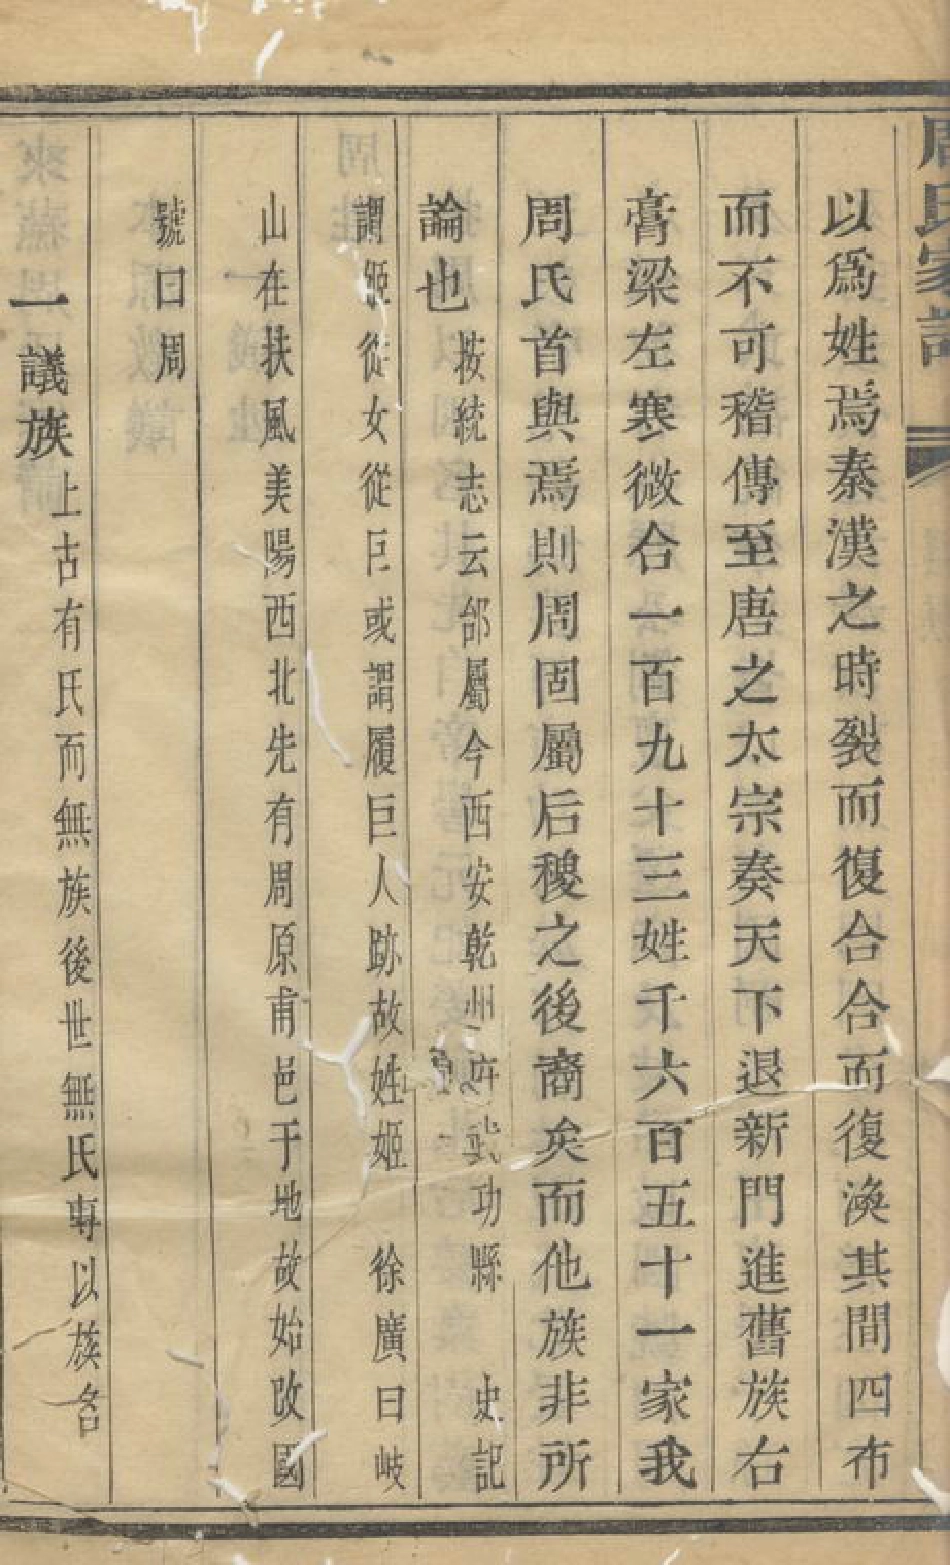 周氏家譜
以爲姓焉秦漢之時裂而復合合而復渙其間四布
而不可稽傳至唐之太宗奏天下退新門進舊族右
膏梁左寒微合一百九十三姓千六百五十一家我
周氏首與焉則周固屬后稷之後裔矣而他族非所
論也按統志云邰屬今西安乾州武功縣 史記
謂姬從女從𦣞或謂履巨人跡故姓姬 徐廣曰岐
山在扶風美陽西北先有周原甫邑于地故始改國
號曰周
一議族上古有氏而無族後世無氏専以族名